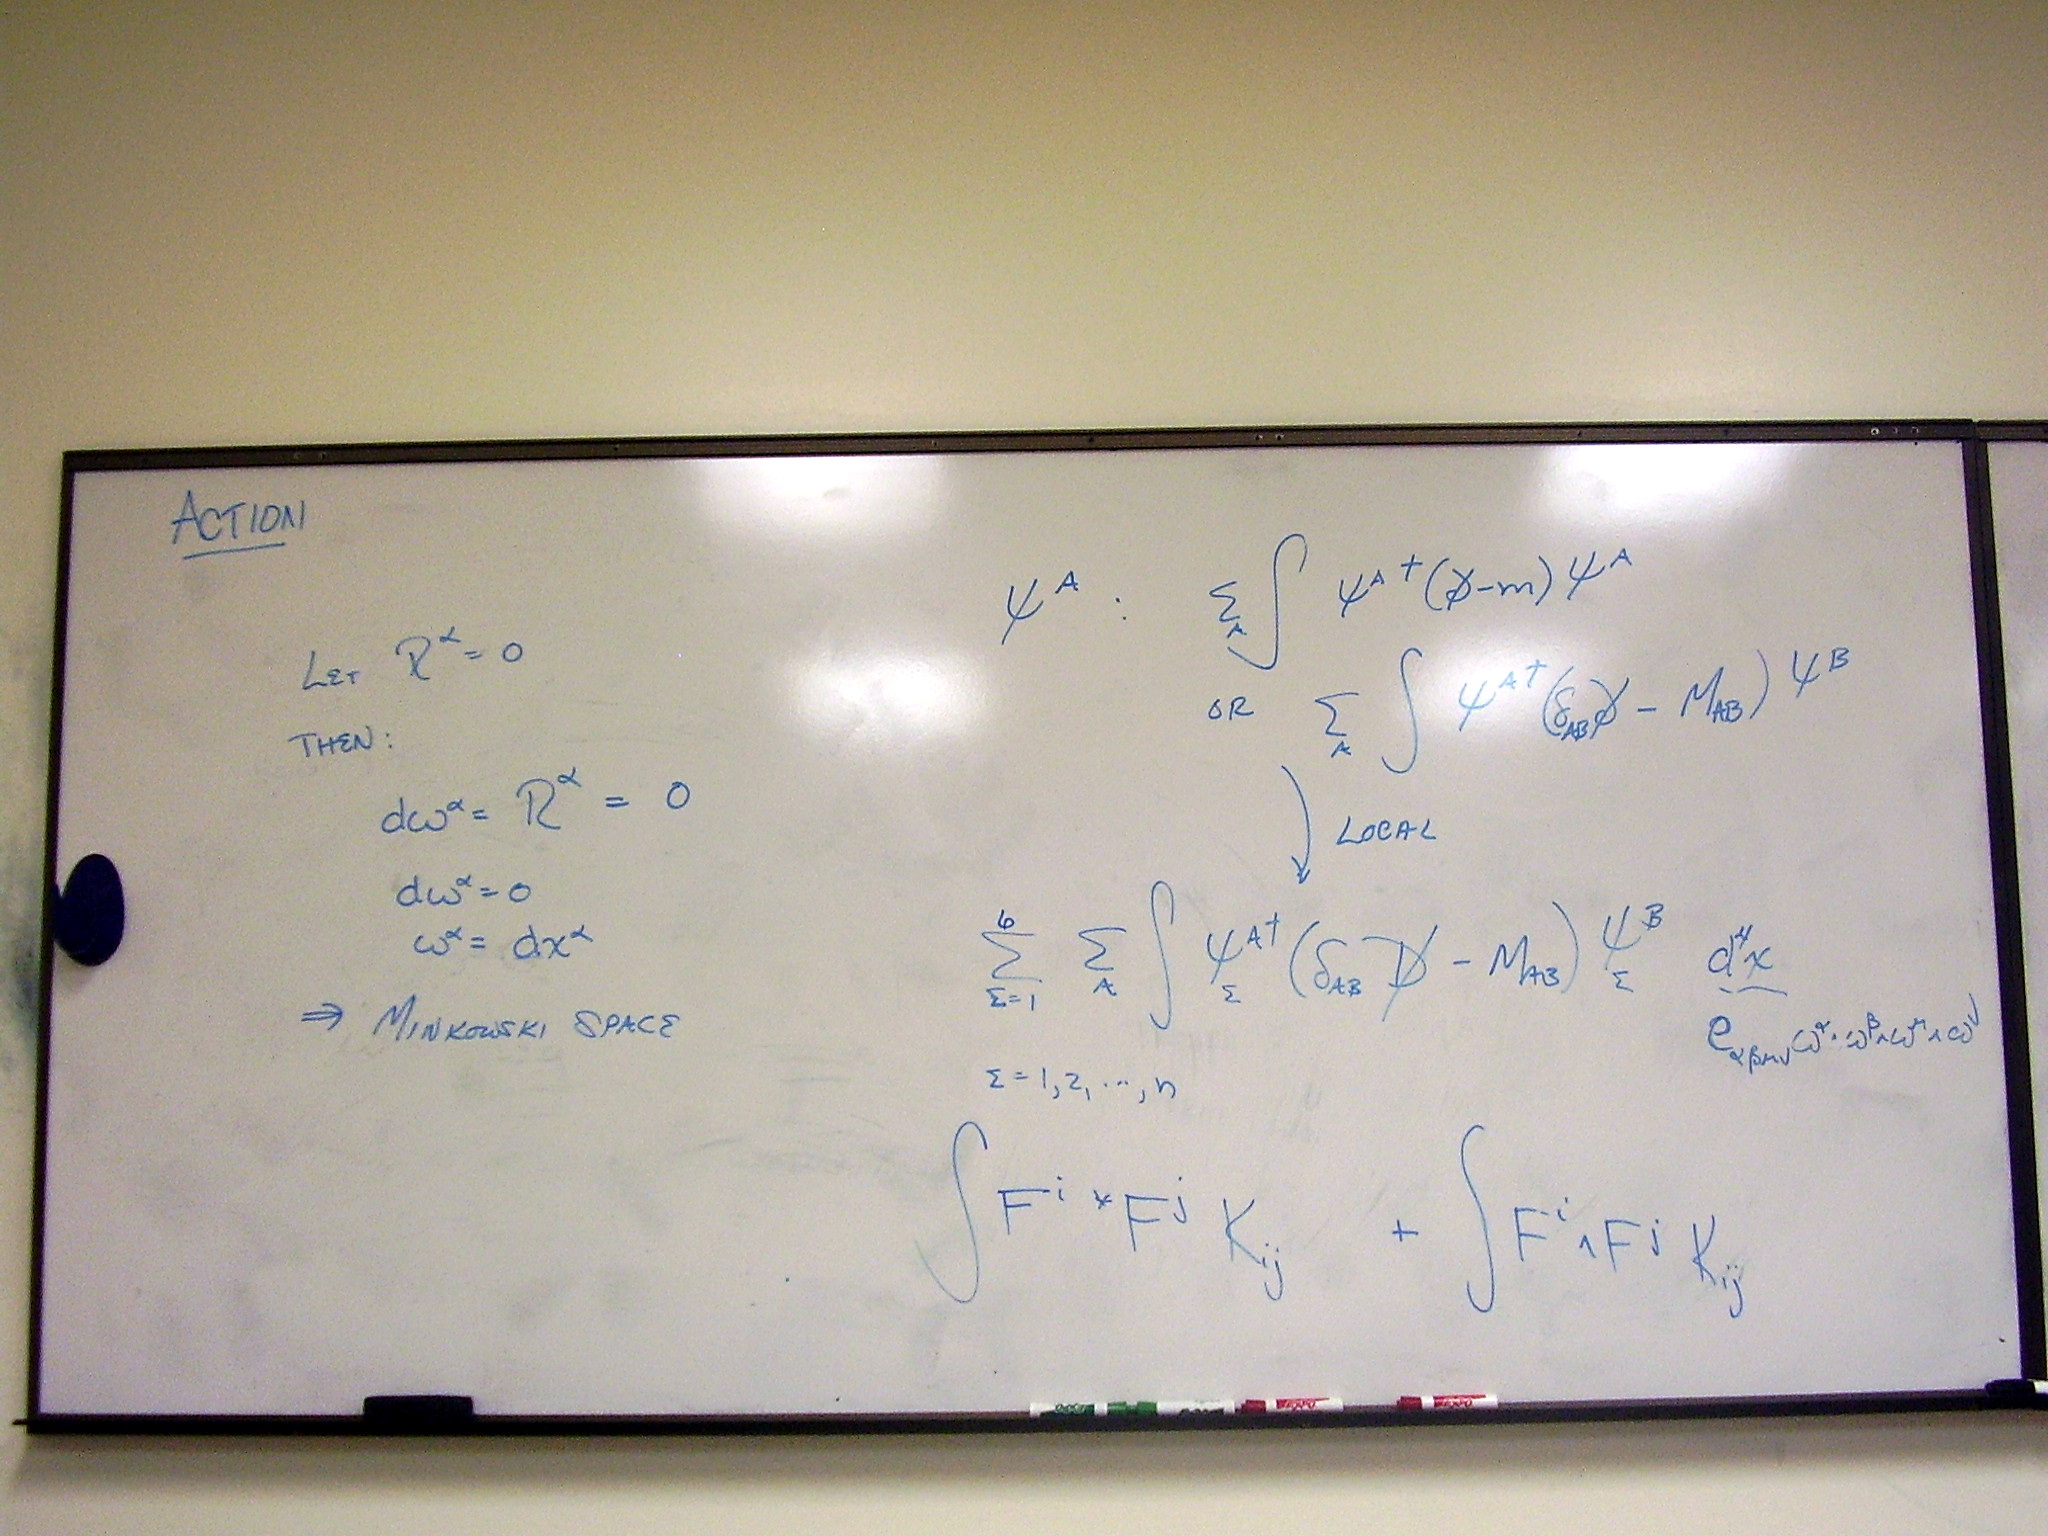 ACTION
LET R^α = 0
THEN:
dω^α = R^α = 0
dω^α = 0
ω^α = dx^α
⇒ MINKOWSKI SPACE
ψ^A : Σ_A ∫ ψ^A† (∂̸ - m) ψ^A
OR Σ_A ∫ ψ^A† (δ_AB ∂̸ - M_AB) ψ^B
LOCAL
Σ_{Σ=1}^6 Σ_A ∫ ψ_Σ^A† (δ_AB D̸ - M_AB) ψ_Σ^B d^4x
e_αβμν ω^α ∧ ω^β ∧ ω^μ ∧ ω^ν
Σ = 1, 2, ..., n
∫ F^i *F^j K_ij + ∫ F^i ∧ F^j K_ij
EXPO
EXPO